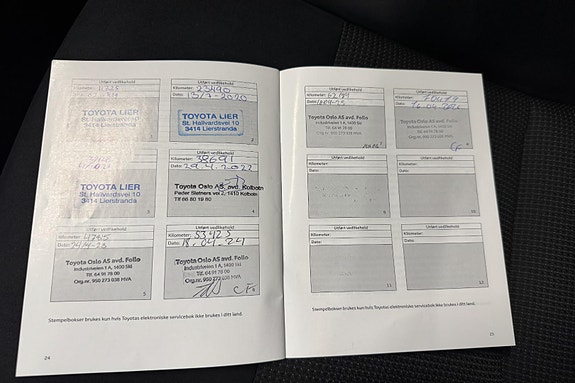 Utført vedlikehold
11725
TOYOTA LIER
St. Hallvardsvei 10
3414 Lierstranda
Utført vedlikehold
Kilometer: 23490
Dato: 13/7-2020
TOYOTA LIER
St. Hallvardsvei 10
3414 Lierstranda
2
TOYOTA LIER
St. Hallvardsvei 10
3414 Lierstranda
3
Utført vedlikehold
Kilometer: 38691
Dato: 29.4.2022
Toyota Oslo AS, avd. Kolbotn
Peder Sletners vei 2, 1410 Kolbotn
Tlf 66 80 19 80
4
Utført vedlikehold
Kilometer: 4785
Dato: 24/4-23
Toyota Oslo AS avd. Follo
Industriveien 1 A, 1400 Ski
Tlf. 64 91 78 00
Org.nr. 950 273 038 MVA
5
Utført vedlikehold
Kilometer: 53425
Dato: 18.04.24
Toyota Oslo AS avd. Follo
Industriveien 1 A, 1400 Ski
Tlf. 64 91 78 00
Org.nr. 950 273 038 MVA
CF
Stempelbokser brukes kun hvis Toyotas elektroniske servicebok ikke brukes i ditt land.
24
Utført vedlikehold
Kilometer:
Dato:
Toyota Oslo AS avd. Follo
Industriveien 1 A, 1400 Ski
Tlf. 64 91 78 00
Org.nr. 950 273 038 MVA
7
Utført vedlikehold
Kilometer:
Dato:
Toyota Oslo AS avd. Follo
Industriveien 1 A, 1400 Ski
Tlf. 64 91 78 00
Org.nr. 950 273 038 MVA
8
CF
Utført vedlikehold
Kilometer:
Dato:
9
Utført vedlikehold
Kilometer:
Dato:
10
Utført vedlikehold
Kilometer:
Dato:
11
Utført vedlikehold
Kilometer:
Dato:
12
Stempelbokser brukes kun hvis Toyotas elektroniske servicebok ikke brukes i ditt land.